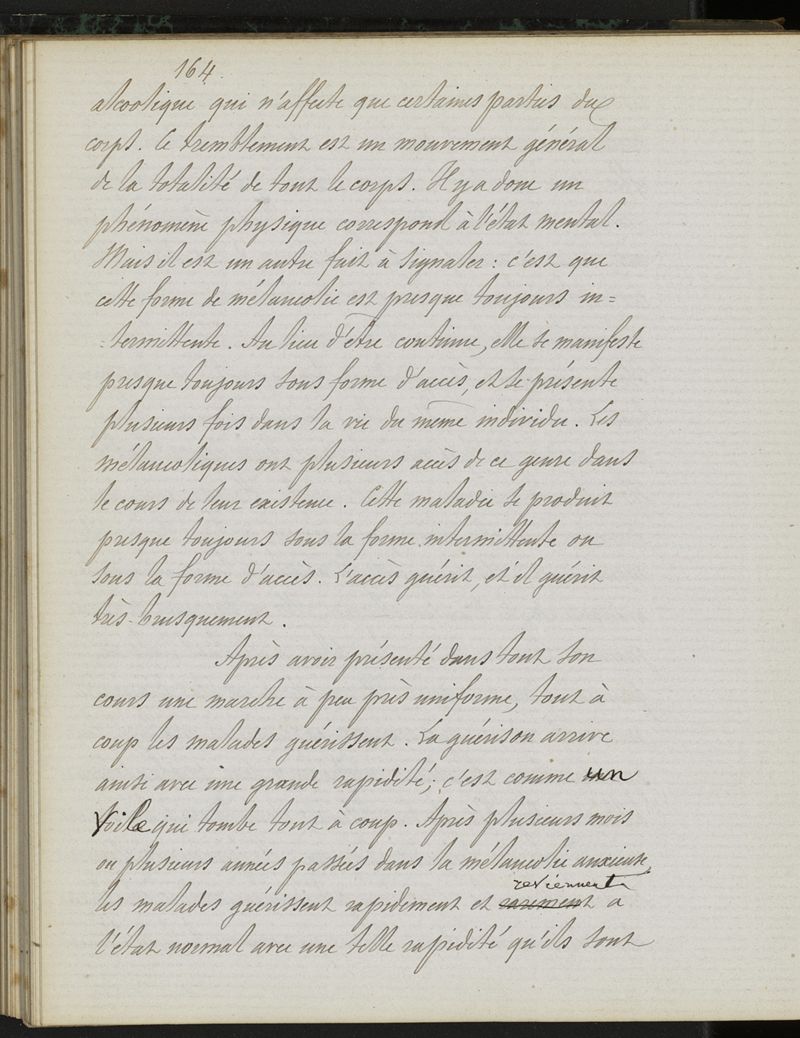 164.
alcoolique qui n'affecte que certaines parties du
corps. Ce tremblement est un mouvement général
de la totalité de tout le corps. Il y a donc un
phénomène physique correspond à l'état mental.
Mais il est un autre fait à signaler : c'est que
cette forme de mélancolie est presque toujours in=
=termittente. Au lieu d'être continue, elle se manifeste
presque toujours sous forme d'accès, et se présente
plusieurs fois dans la vie du même individu. Les
mélancoliques ont plusieurs accès de ce genre dans
le cours de leur existence. Cette maladie se produit
presque toujours sous la forme intermittente ou
sous la forme d'accès. L'accès guérit, et il guérit
très-brusquement.
Après avoir présenté dans tout son
cours une marche à peu près uniforme, tout à
coup les malades guérissent. La guérison arrive
ainsi avec une grande rapidité; c'est comme un
voile qui tombe tout à coup. Après plusieurs mois
ou plusieurs années passées dans la mélancolie anxieuse,
reviennent
les malades guérissent rapidement et a
l'état normal avec une telle rapidité qu'ils sont